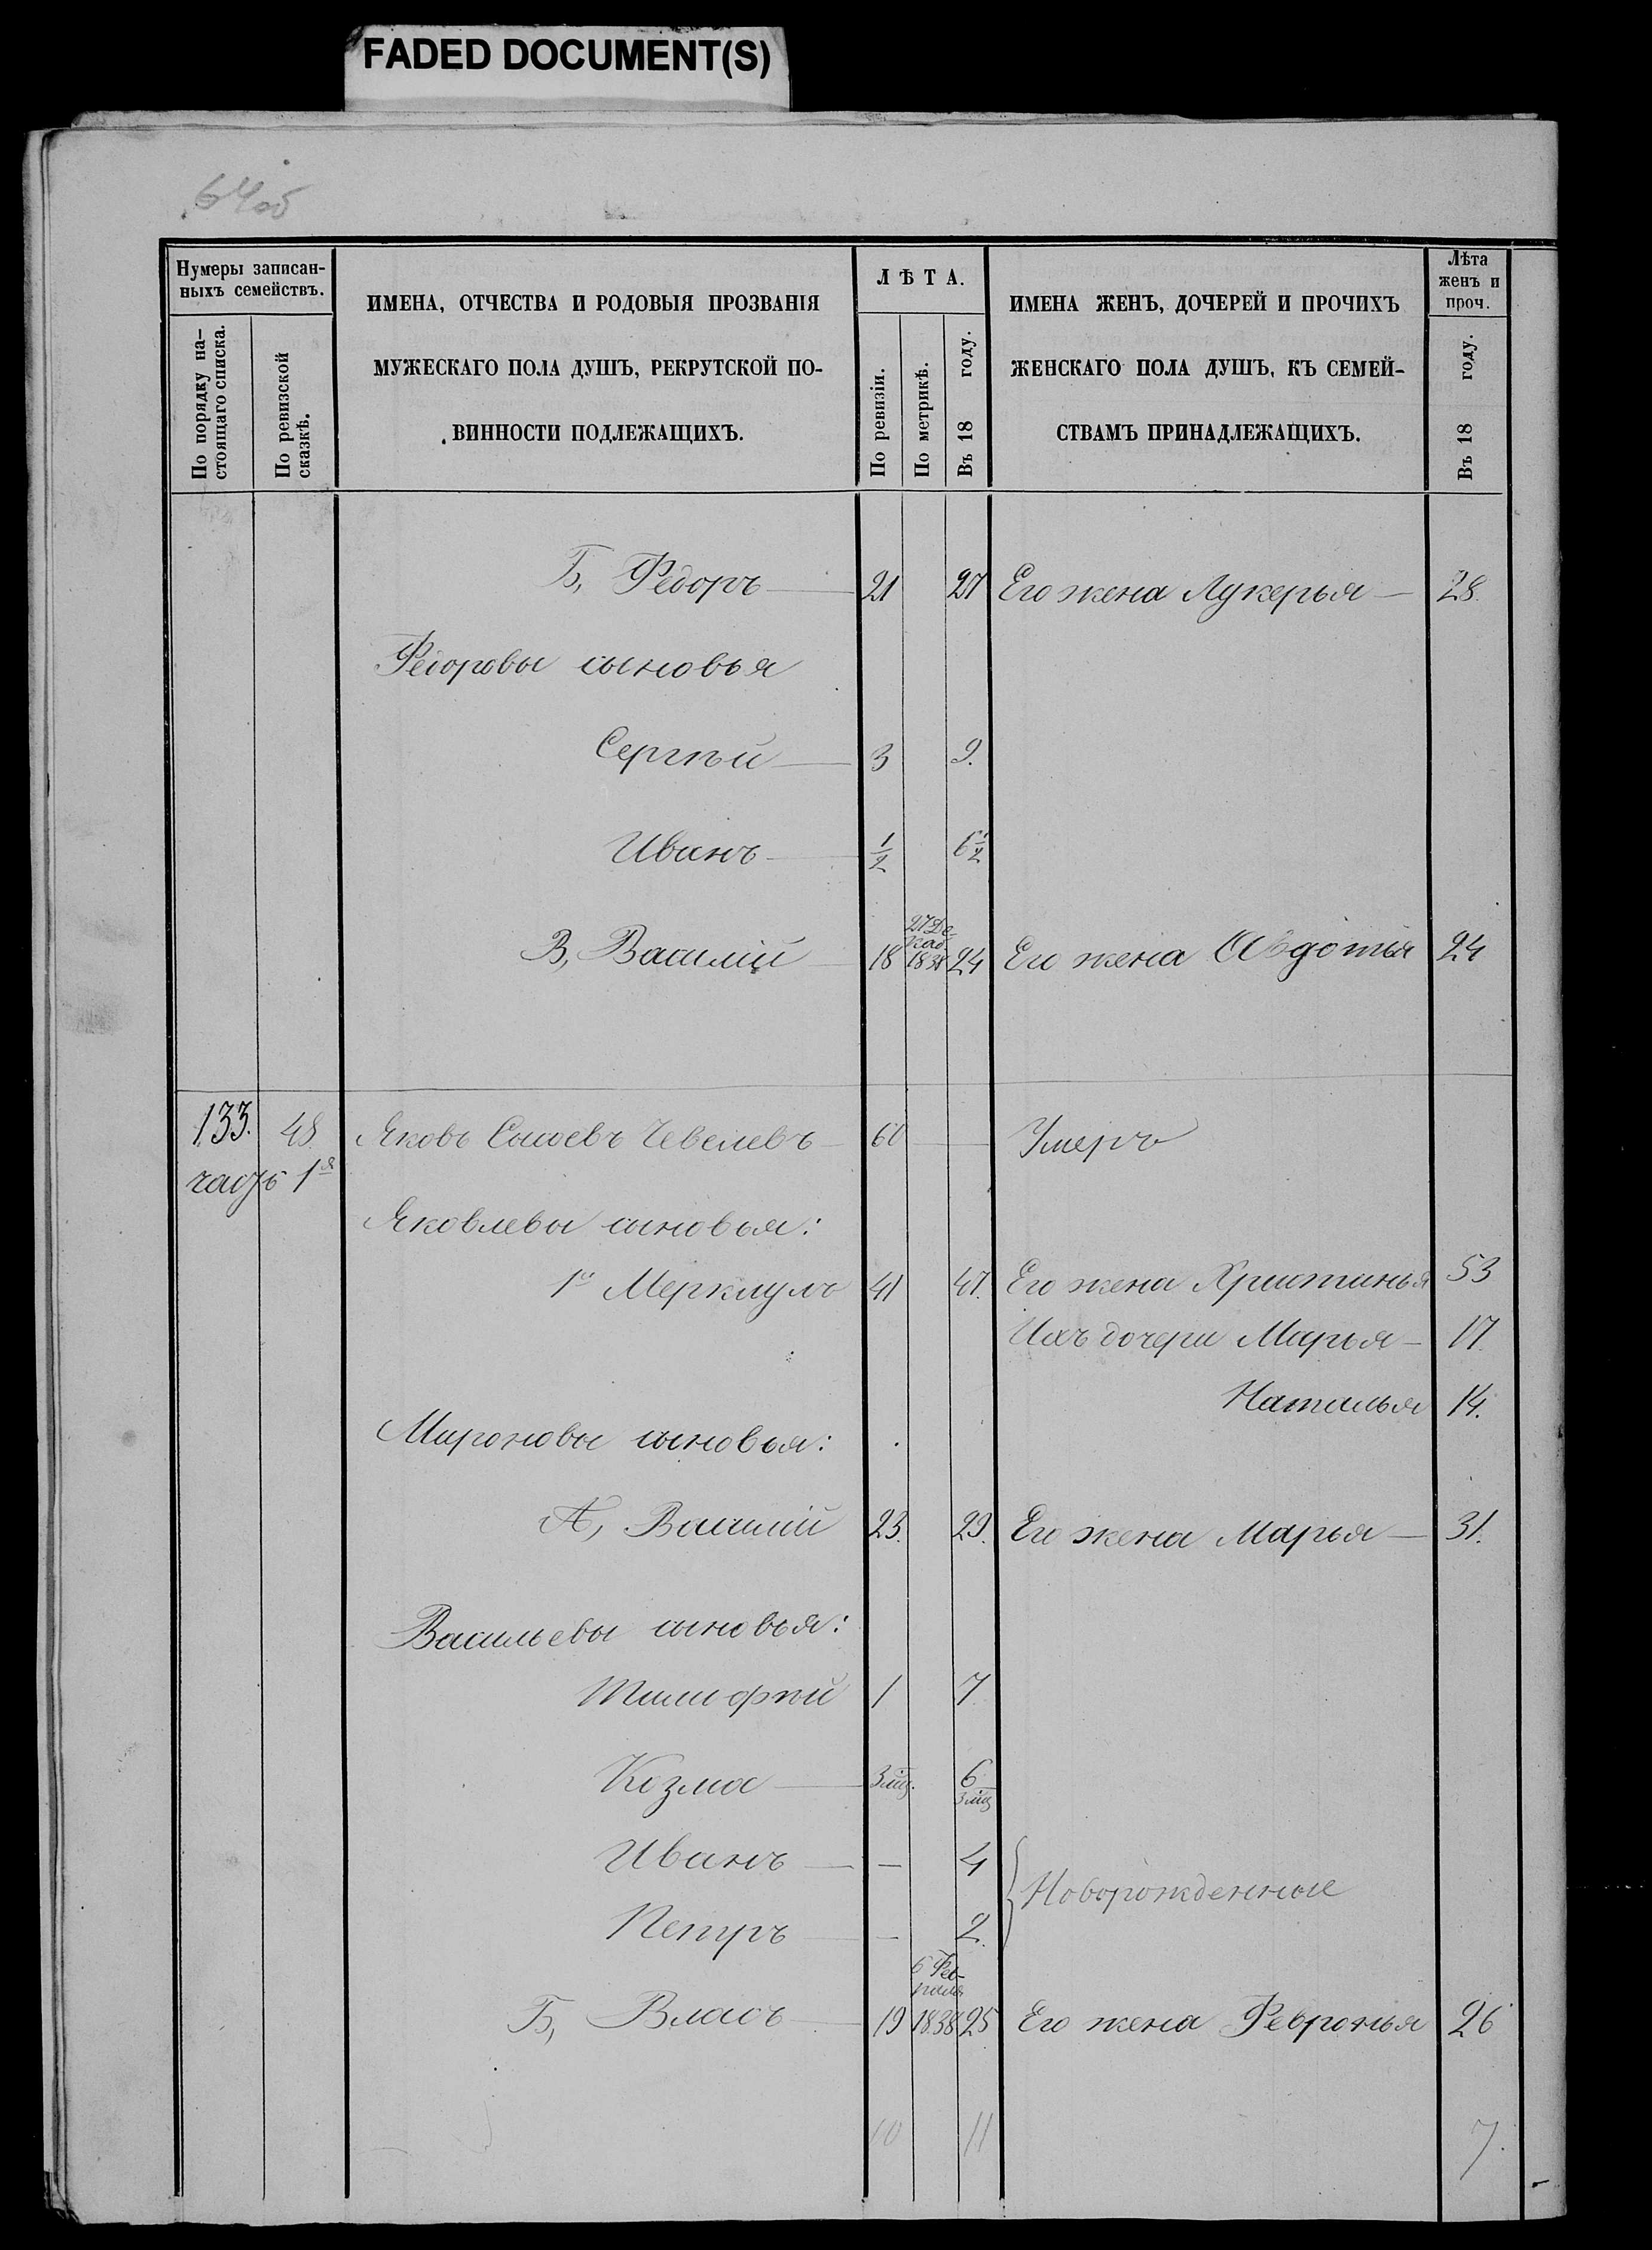 FADED DOCUMENT(S)
64об
Нумеры записан-
ныхъ семействъ.
По порядку на-
стоящаго списка.
По ревизской
сказкѣ.
ИМЕНА, ОТЧЕСТВА И РОДОВЫЯ ПРОЗВАНІЯ
МУЖЕСКАГО ПОЛА ДУШЪ, РЕКРУТСКОЙ ПО-
ВИННОСТИ ПОДЛЕЖАЩИХЪ.
ЛѢТА.
По ревизіи.
По метрикѣ.
Въ 18 году.
ИМЕНА ЖЕНЪ, ДОЧЕРЕЙ И ПРОЧИХЪ
ЖЕНСКАГО ПОЛА ДУШЪ, КЪ СЕМЕЙ-
СТВАМЪ ПРИНАДЛЕЖАЩИХЪ.
Лѣта
женъ и
проч.
Въ 18 году.
Б, Ѳедоръ 21 27 Его жена Лукерья 28.
Ѳедоровы сыновья
Сергѣй 3 9.
Иванъ 1/2 6 1/2
27 Де-
каб
В, Василій 18 1838 24 Его жена Авдотья 24
133. 48 Яковъ Сысоевъ Чевелевъ 60 Умеръ
часть 1я
Яковлевы сыновья:
1е Меркулъ 41 47. Его жена Христинья 53
Ихъ дочери Марья 17.
Наталья 14.
Мироновы сыновья:
А, Василій 23. 29. Его жена Марья 31.
Васильевы сыновья:
Тимофѣй 1 7
Козма 3 мц. 6
3 мц
Иванъ — 4
Новорожденные
Петръ — 2.
6 Фев-
раля
Б, Власъ 19 1838 25 Его жена Февронья 26
10 11 7.